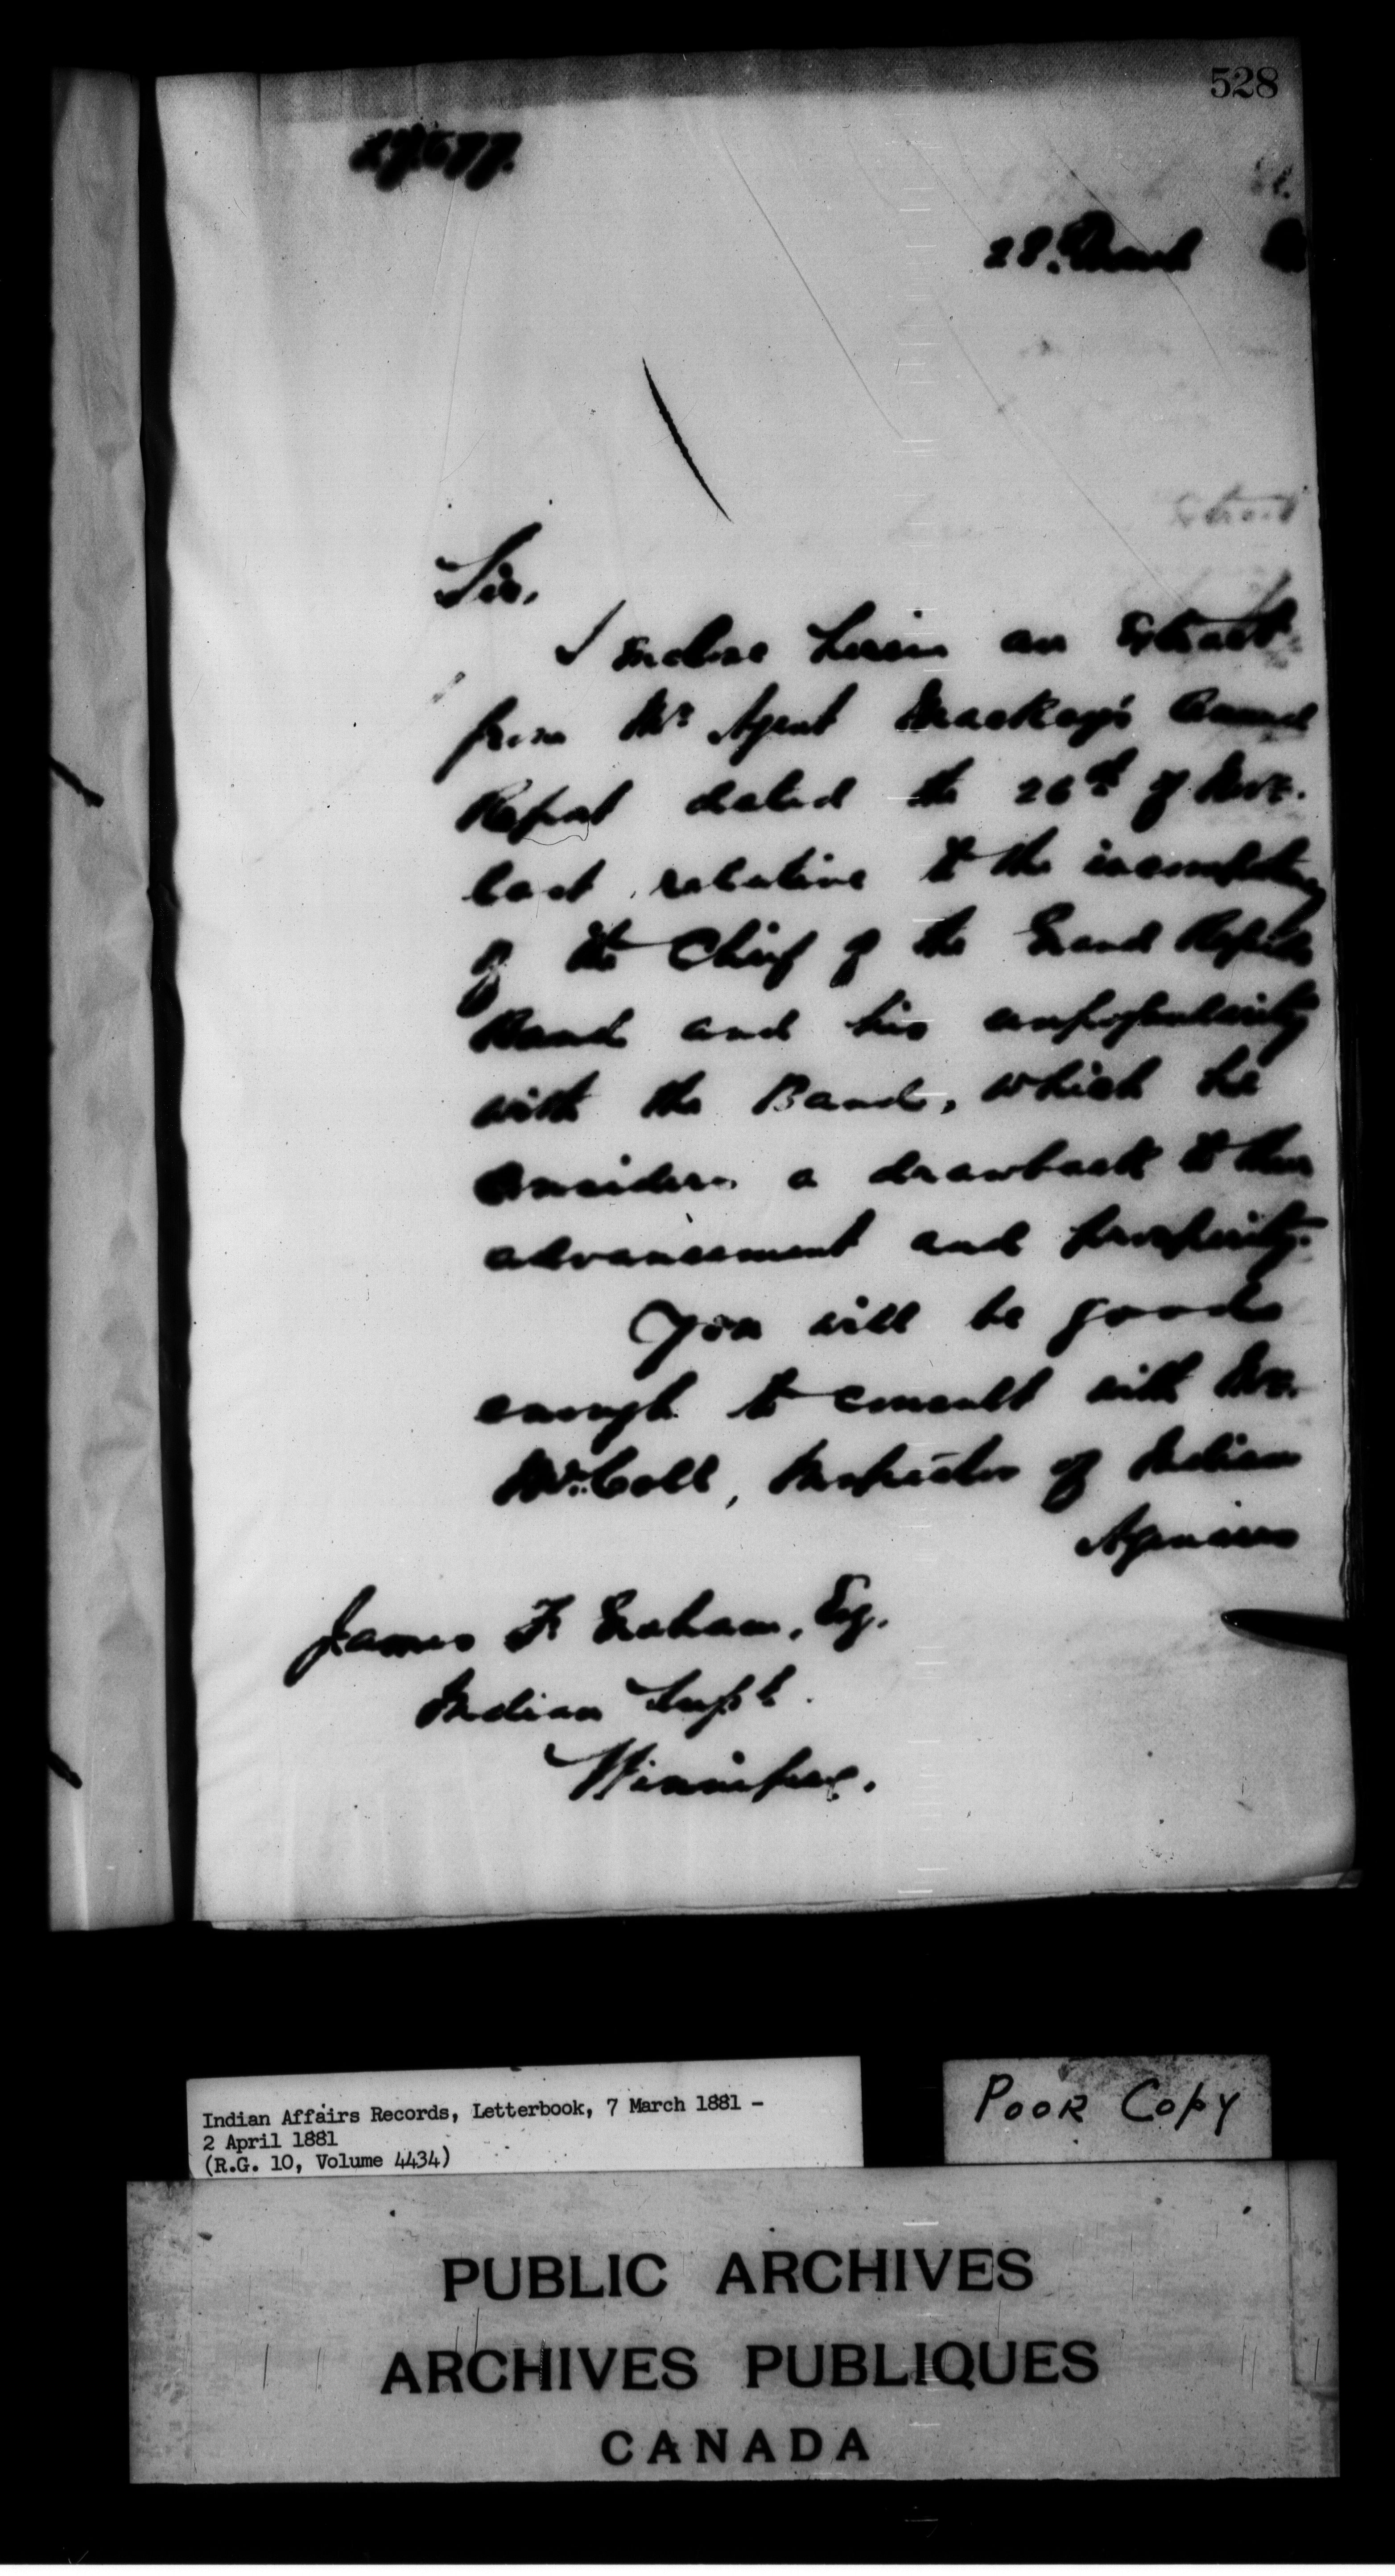 528
27.677.
28. March
Sir,
I enclose herein an Extract
from Mr Agent Mackay's Annual
Report dated the 26th of Nov.
last relative to the incompetency
of the Chief of the Grand Rapids
Band and his unpopularity
with the Band, which he
considers a drawback to their
advancement and prosperity.
You will be good
enough to consult with Mr.
McColl, Inspector of Indian
Agencies
James F. Graham, Esq.
Indian Supt.
Winnipeg.
Indian Affairs Records, Letterbook, 7 March 1881 -
2 April 1881
(R.G. 10, Volume 4434)
POOR COPY
PUBLIC ARCHIVES
ARCHIVES PUBLIQUES
CANADA